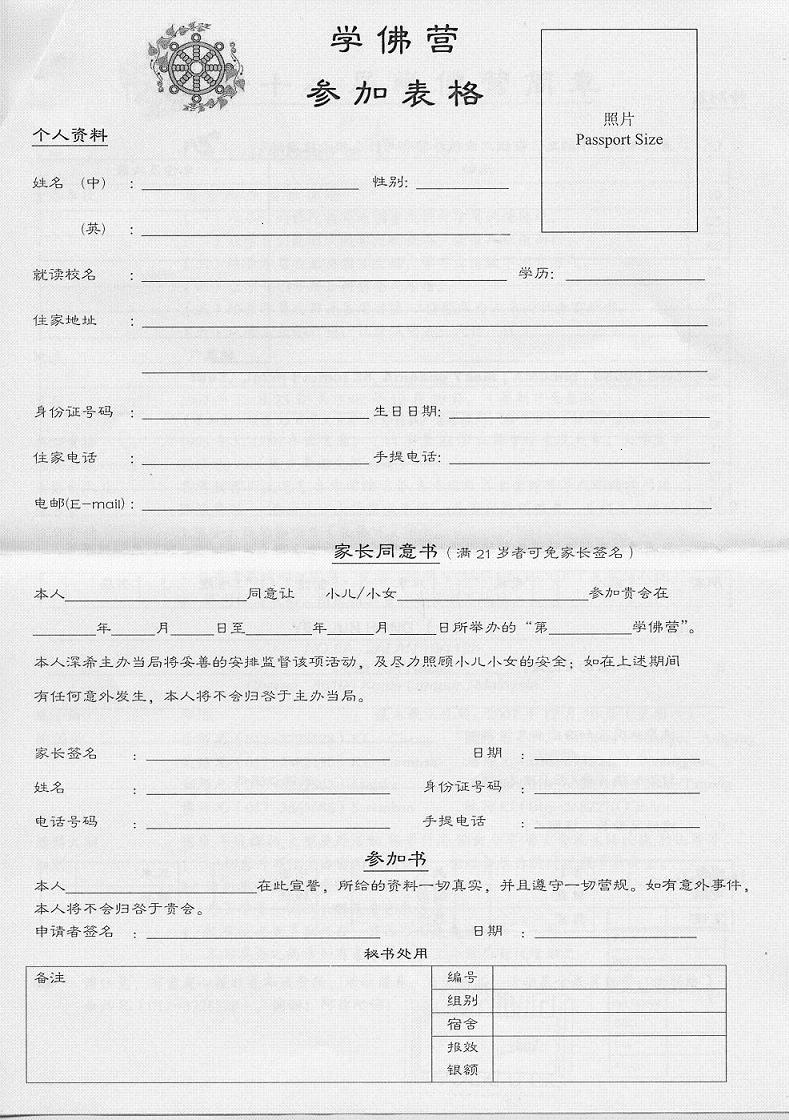 学佛营
参加表格
照片
Passport Size
个人资料
姓名 (中) : 性别:
(英) :
就读校名 : 学历:
住家地址 :
身份证号码 : 生日日期:
住家电话 : 手提电话:
电邮(E-mail) :
家长同意书 ( 满 21 岁者可免家长签名 )
本人____________同意让 小儿/小女____________参加贵会在
______年____月____日至______年____月____日所举办的 “第______学佛营”。
本人深希主办当局将妥善的安排监督该项活动，及尽力照顾小儿小女的安全；如在上述期间
有任何意外发生，本人将不会归咎于主办当局。
家长签名 : 日期 :
姓名 : 身份证号码 :
电话号码 : 手提电话 :
参加书
本人____________在此宣誓，所给的资料一切真实，并且遵守一切营规。如有意外事件，
本人将不会归咎于贵会。
申请者签名 : 日期 :
秘书处用
备注 编号
组别
宿舍
报效
银额